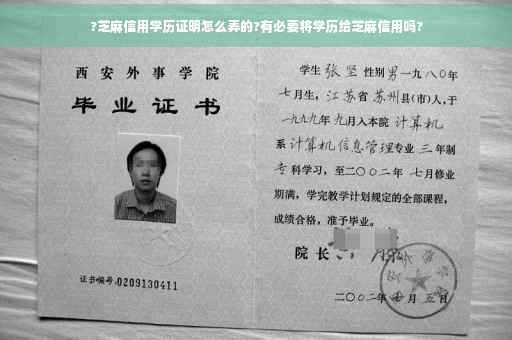 ?芝麻信用学历证明怎么弄的?有必要将学历给芝麻信用吗?
西安外事学院
毕业证书
证书编号:0209130411
学生 张坚 性别 男 一九八〇年
七月生, 江苏省 苏州 县(市)人, 于
一九九九年 九月入本院 计算机
系 计算机信息管理专业 三 年制
专科学习, 至二〇〇二年 七月修业
期满, 学完教学计划规定的全部课程,
成绩合格, 准予毕业。
院长
二〇〇二年 月五日